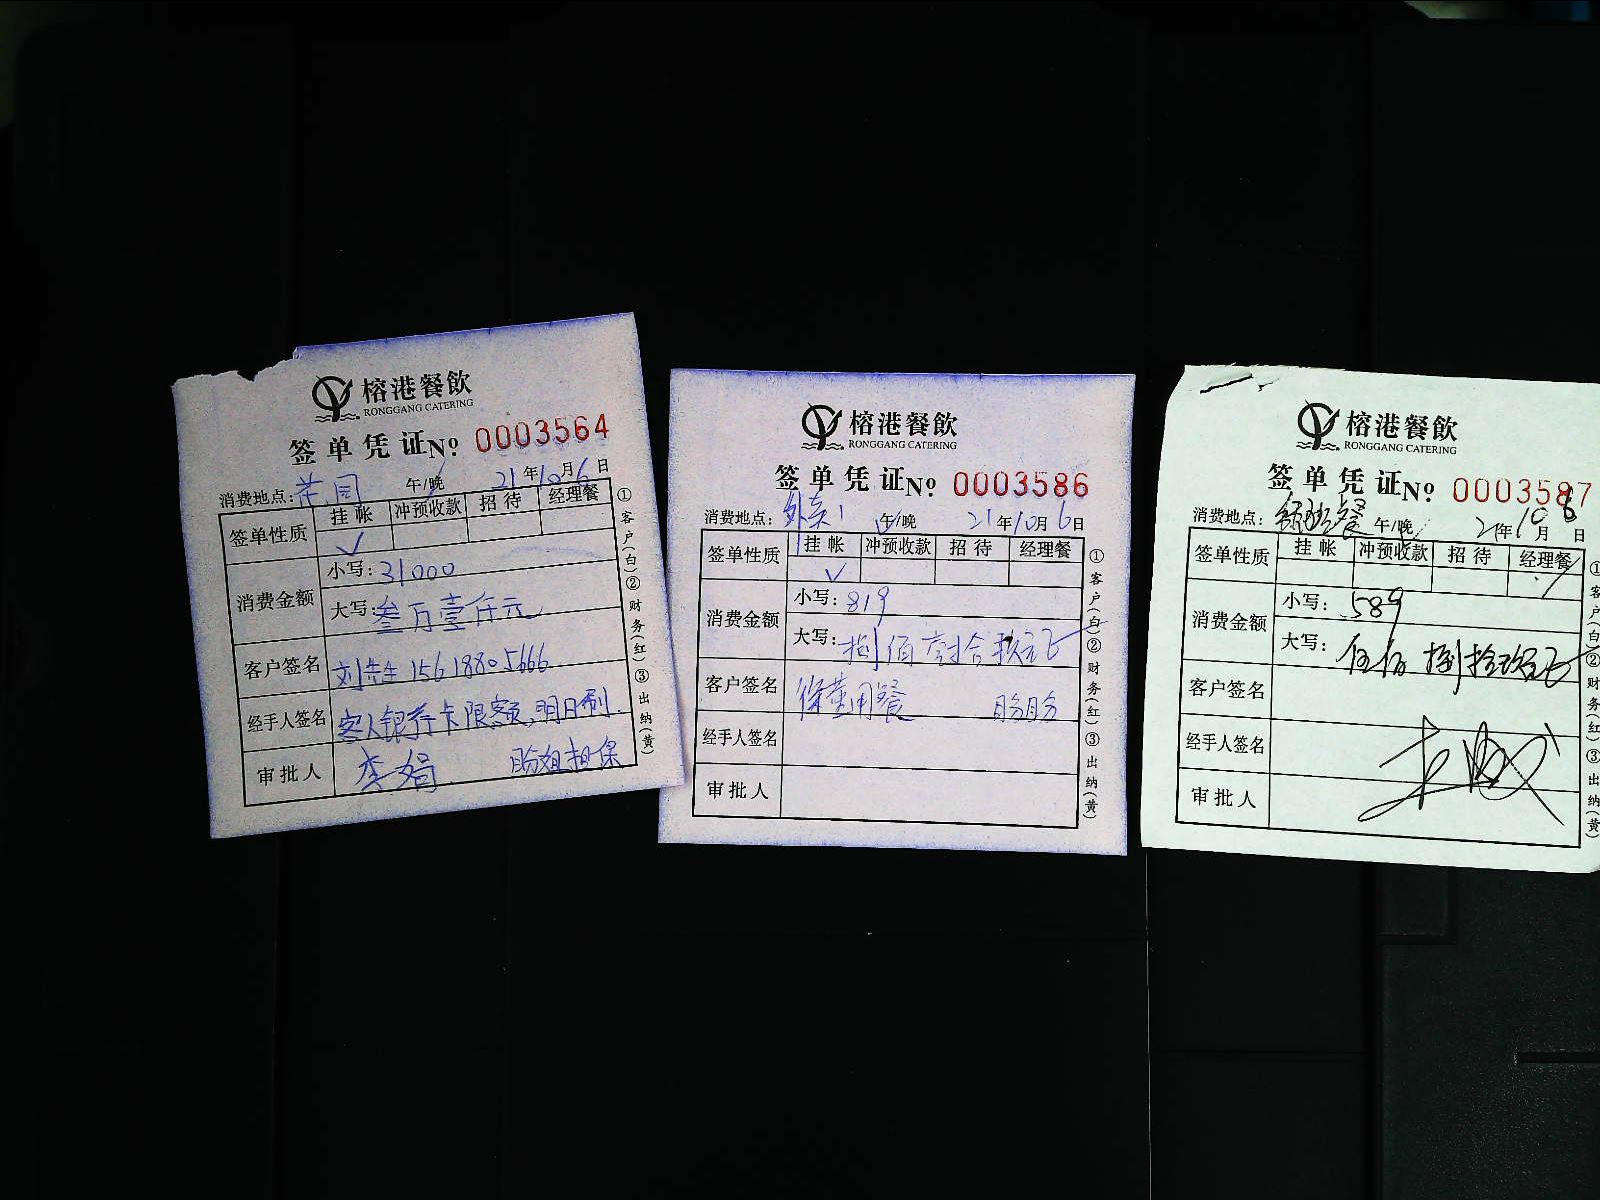 榕港餐飲
RONGGANG CATERING
签单凭证 No. 0003564
消费地点: 午/晚 21年10月6日
签单性质 挂帐 冲预收款 招待 经理餐
✓
消费金额 小写: 31000
大写: 叁万壹仟元
客户签名 刘先生 15618805666
经手人签名 客人银行卡限额,明日刷.
审批人 李娟 盼姐担保
①客户(白)②财务(红)③出纳(黄)
榕港餐飲
RONGGANG CATERING
签单凭证 No. 0003586
消费地点: 外卖1 午/晚 21年10月6日
签单性质 挂帐 冲预收款 招待 经理餐
✓
消费金额 小写: 819
大写: 捌佰壹拾玖元正
客户签名 用餐 盼盼
经手人签名
审批人
①客户(白)②财务(红)③出纳(黄)
榕港餐飲
RONGGANG CATERING
签单凭证 No. 0003587
消费地点: 经理餐 午/晚 21年10月6日
签单性质 挂帐 冲预收款 招待 经理餐
消费金额 小写: 589
大写: 伍佰捌拾玖元正
客户签名
经手人签名
审批人
①客户(白)②财务(红)③出纳(黄)